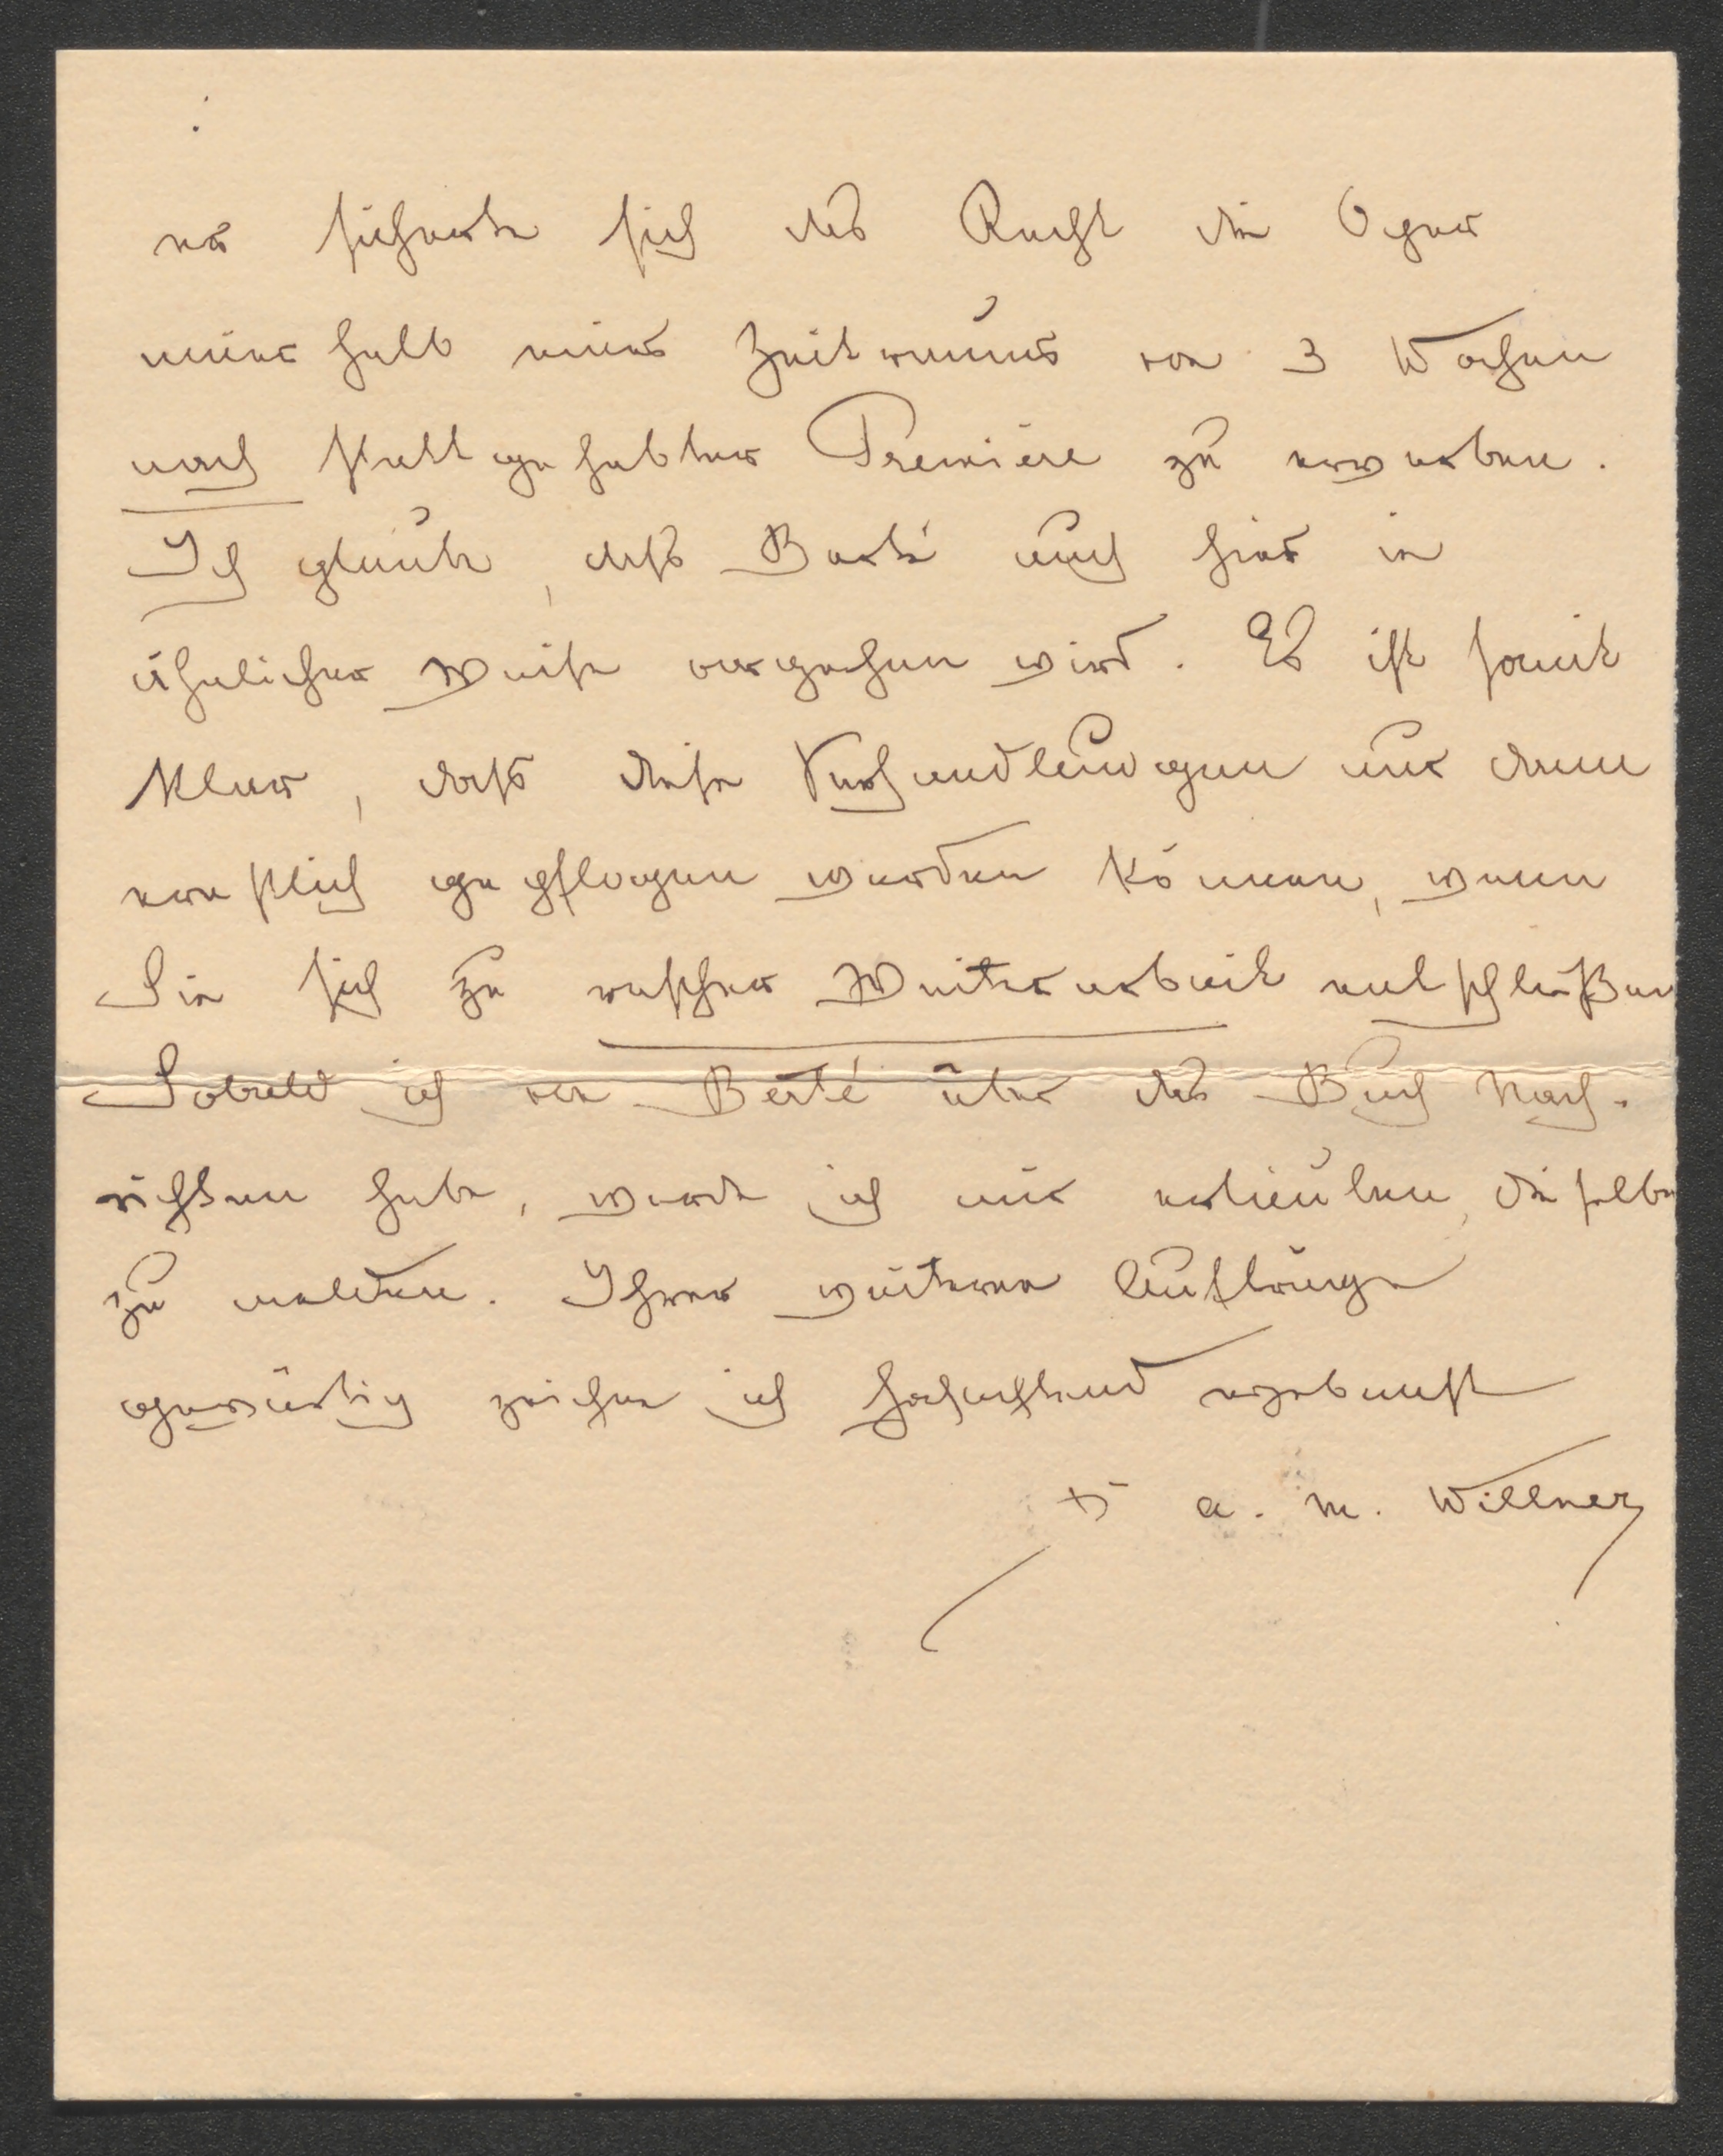 er sicherte sich das Recht die Oper
innerhalb eines Zeitraums von 3 Wochen
nach stattgehabter Première zu erwerben.
Ich glaube, dass Berté auch hier in
ähnlicher Weise vorgehen wird. Es ist somit
klar, dass diese Verhandlungen nur dann
ernstlich gepflogen werden können, wenn
Sie sich zu rascher Weiterarbeit entschließen
Sobald ich von Berté über das Buch Nach-
richten habe, werde ich mir erlauben, dieselben
zu melden. Ihrer weiteren Aufträge
gewärtig zeichne ich hochachtend ergebenst
Dr A. M. Willner